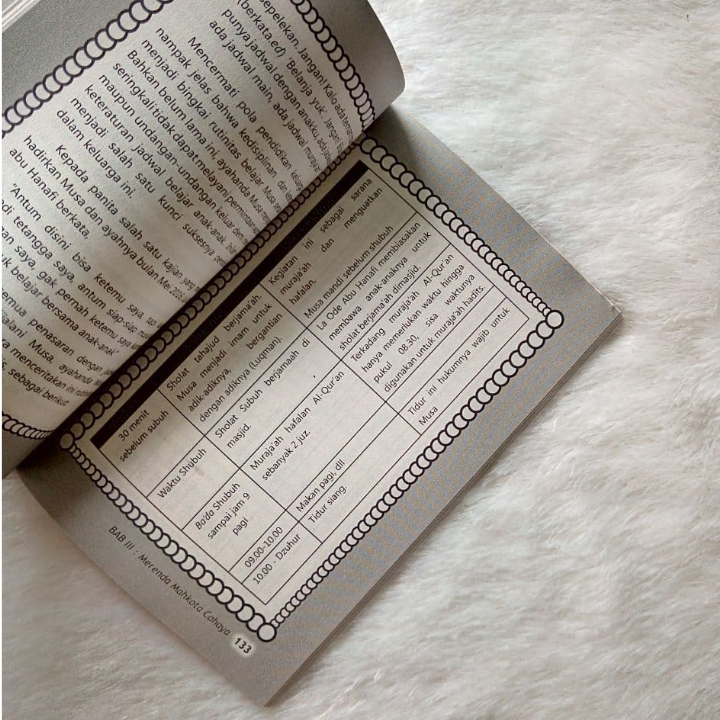 sepelekan. Jangan! Kalo ada teman
(berkata.ed) 'Belanja yuk',
punya jadwal dengan anakku, ada
ada jadwal main, ada jadwal
Mencermati pola pendidikan
nampak jelas bahwa kedisiplinan dan
menjadi bingkai rutinitas belajar Musa
Bahkan belum lama ini, ayahanda Musa
seringkali tidak dapat melayani
maupun undangan-undangan keluar
keteraturan jadwal belajar anak-anak,
menjadi salah satu kunci suksesnya
dalam keluarga ini.
Kepada panita salah satu kajian yang
hadirkan Musa dan ayahnya bulan Mei
abu Hanafi berkata,
"Antum disini bisa ketemu saya,
tetangga saya, antum siap-siap
saya, gak pernah ketemu saya
belajar bersama anak-anak!
penasaran dengan
Musa, ayahanda
menceritakan ini
sebagai berikut
30 menit
sebelum subuh
Sholat tahajud berjama'ah.
Musa menjadi imam untuk
adik-adiknya, bergantian
dengan adiknya (Luqman).
Kegiatan ini sebagai sarana
muraja'ah dan menguatkan
hafalan.
Waktu Shubuh
Sholat Subuh berjamaah di
masjid.
Musa mandi sebelum shubuh
La Ode Abu Hanafi membiasakan
membawa anak-anaknya untuk
sholat berjama'ah dimasjid.
Ba'da Shubuh
sampai jam 9
pagi
Muraja'ah hafalan Al-Qur'an
sebanyak 2 juz.
Terkadang muraja'ah Al-Qur'an
hanya memerlukan waktu hingga
pukul 08.30, sisa waktunya
digunakan untuk muraja'ah hadits.
09.00-10.00
Makan pagi, dll
10.00 - Dzuhur
Tidur siang.
Tidur ini hukumnya wajib untuk
Musa
BAB III : Merenda Mahkota Cahaya 133